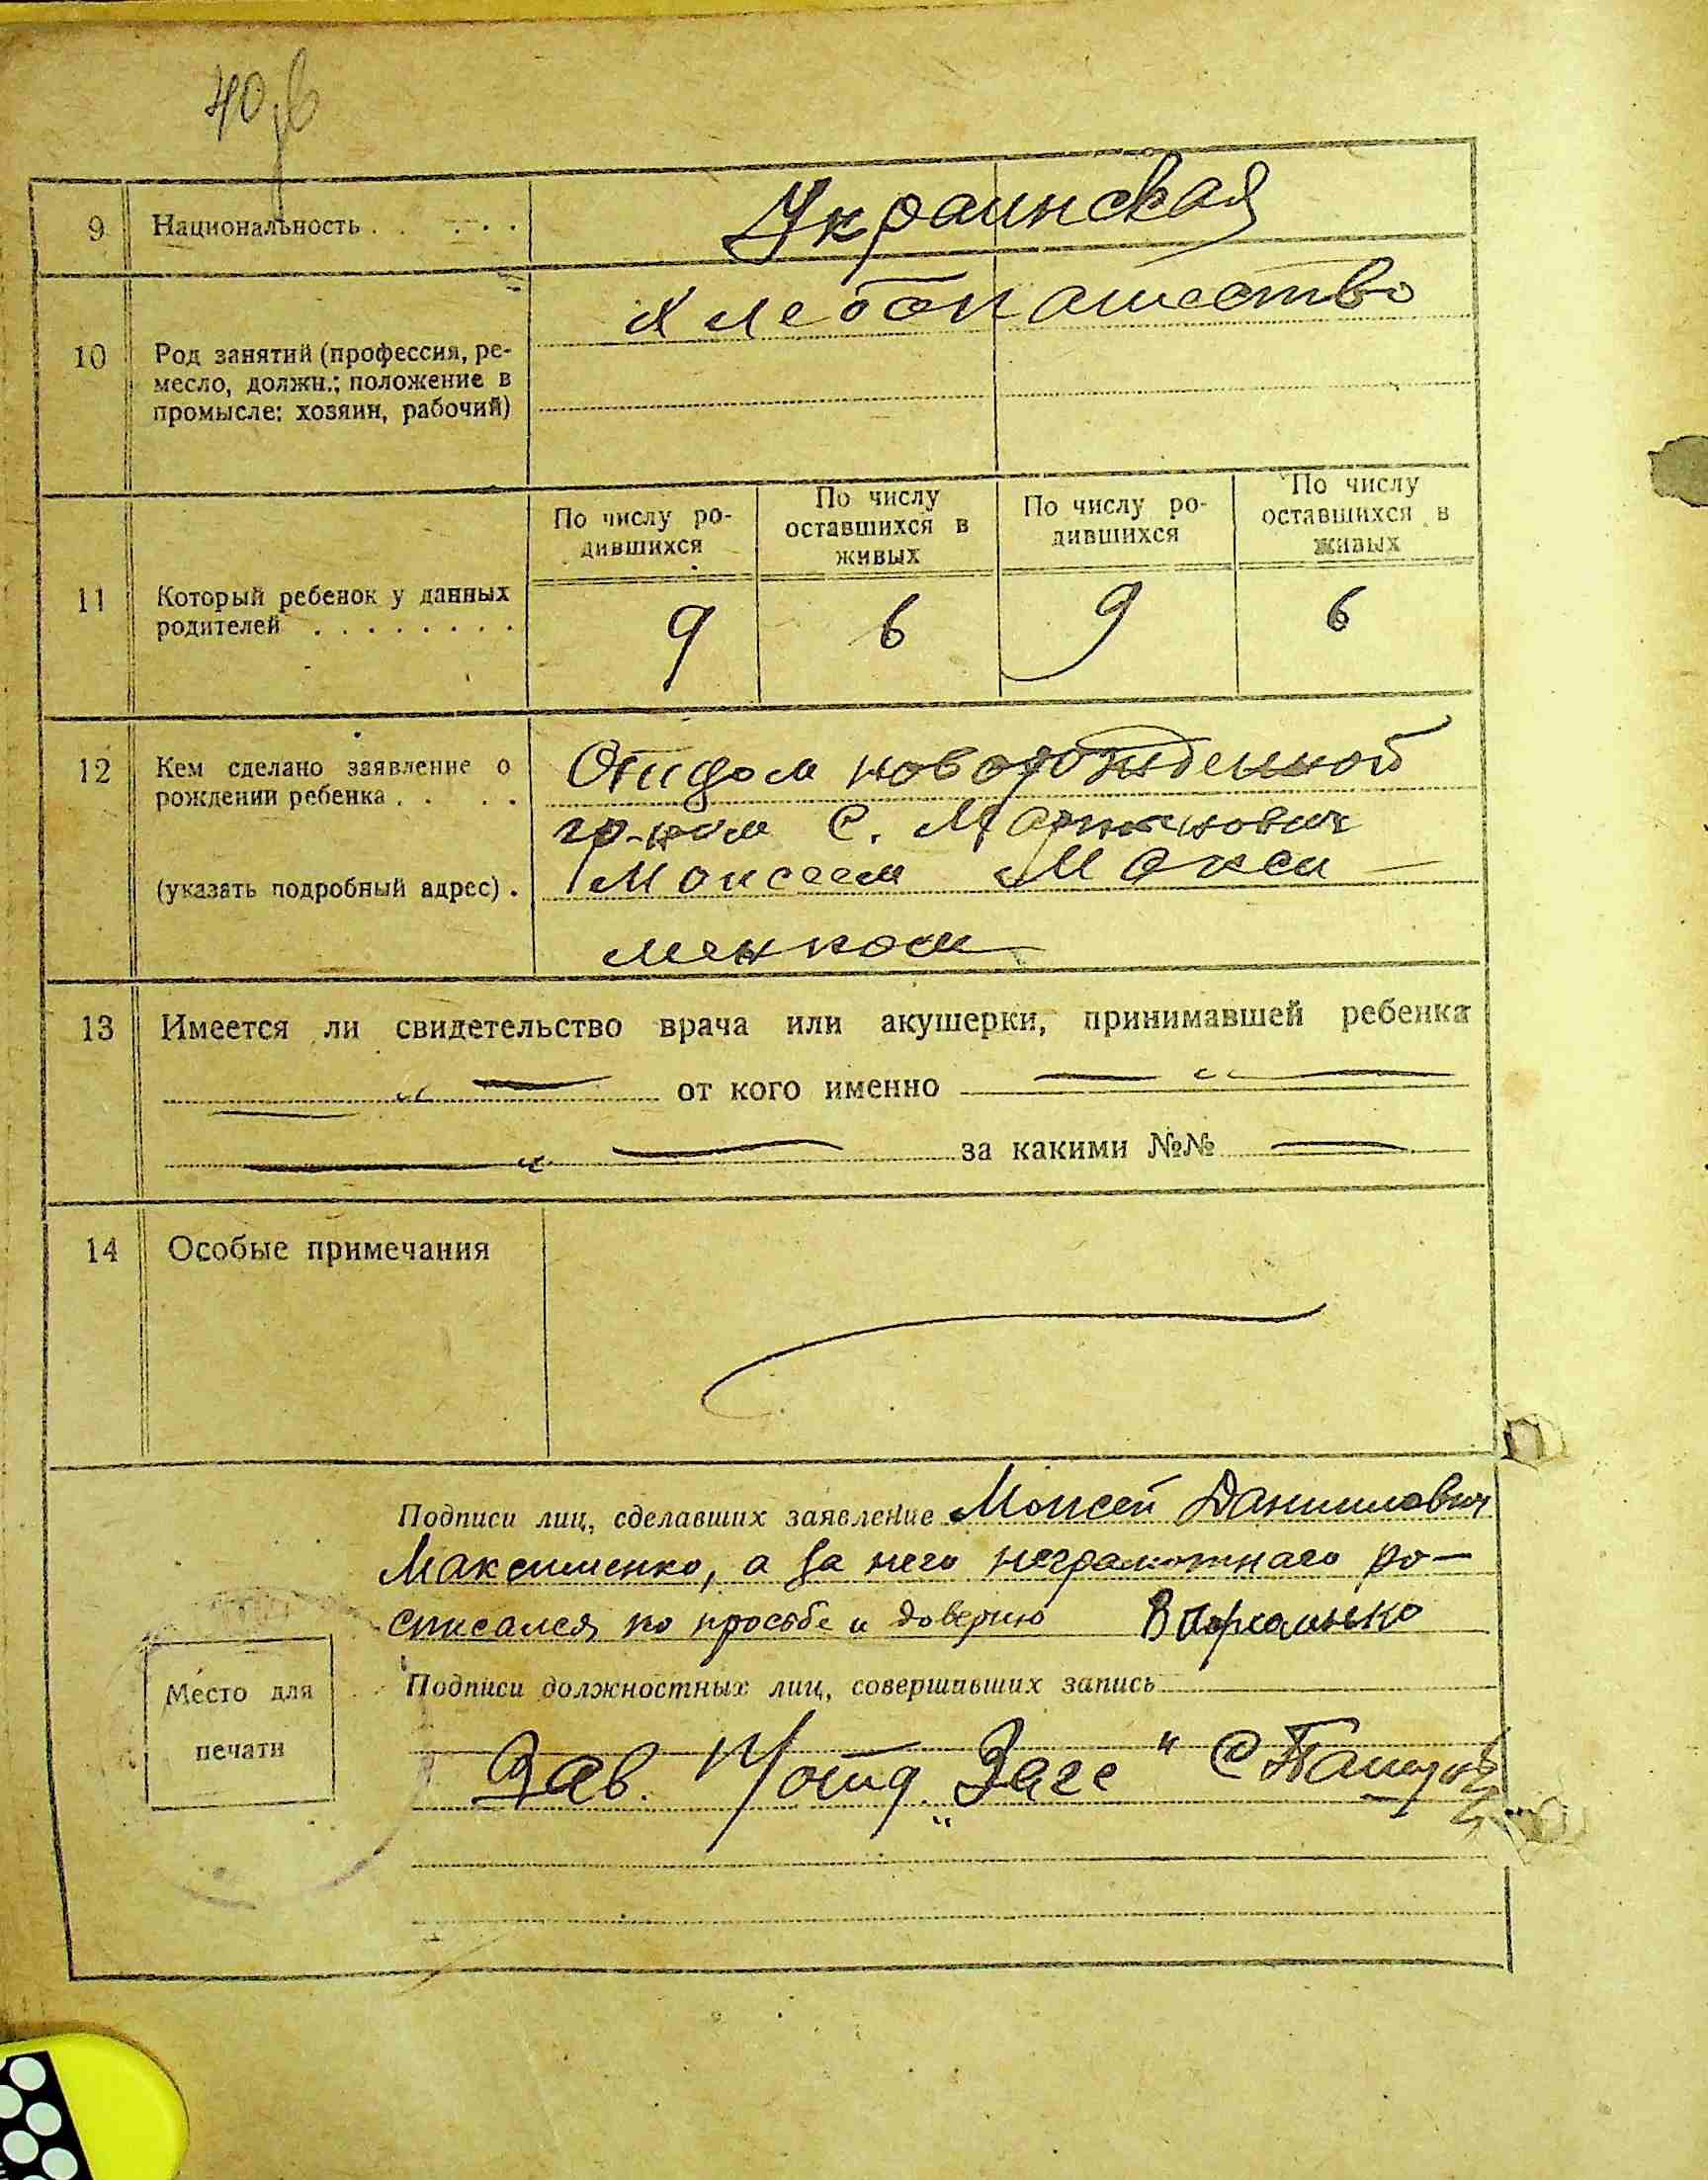 40
9 Национальность . . . . . Украинская
10 Род занятий (профессия, ре-
месло, должн.; положение в
промысле: хозяин, рабочий)
Хлебопашество
По числу ро-
дившихся
По числу
оставшихся в
живых
По числу ро-
дившихся
По числу
оставшихся в
живых
11 Который ребенок у данных
родителей . . . . . . . .
9 6 9 6
12 Кем сделано заявление о
рождении ребенка . . . .
(указать подробный адрес) .
новорожденной
гр-ном С.
Моисеем Макси
менком
13 Имеется ли свидетельство врача или акушерки, принимавшей ребенка
— " — от кого именно — " —
— " — за какими №№ —
14 Особые примечания
Подписи лиц, сделавших заявление Моисей Данилович
Максименко, а за него неграмотнаго ро-
списался по просьбе и доверию
Место для
печати
Подписи должностных лиц, совершивших запись
Зав. П/отд. „Загс"